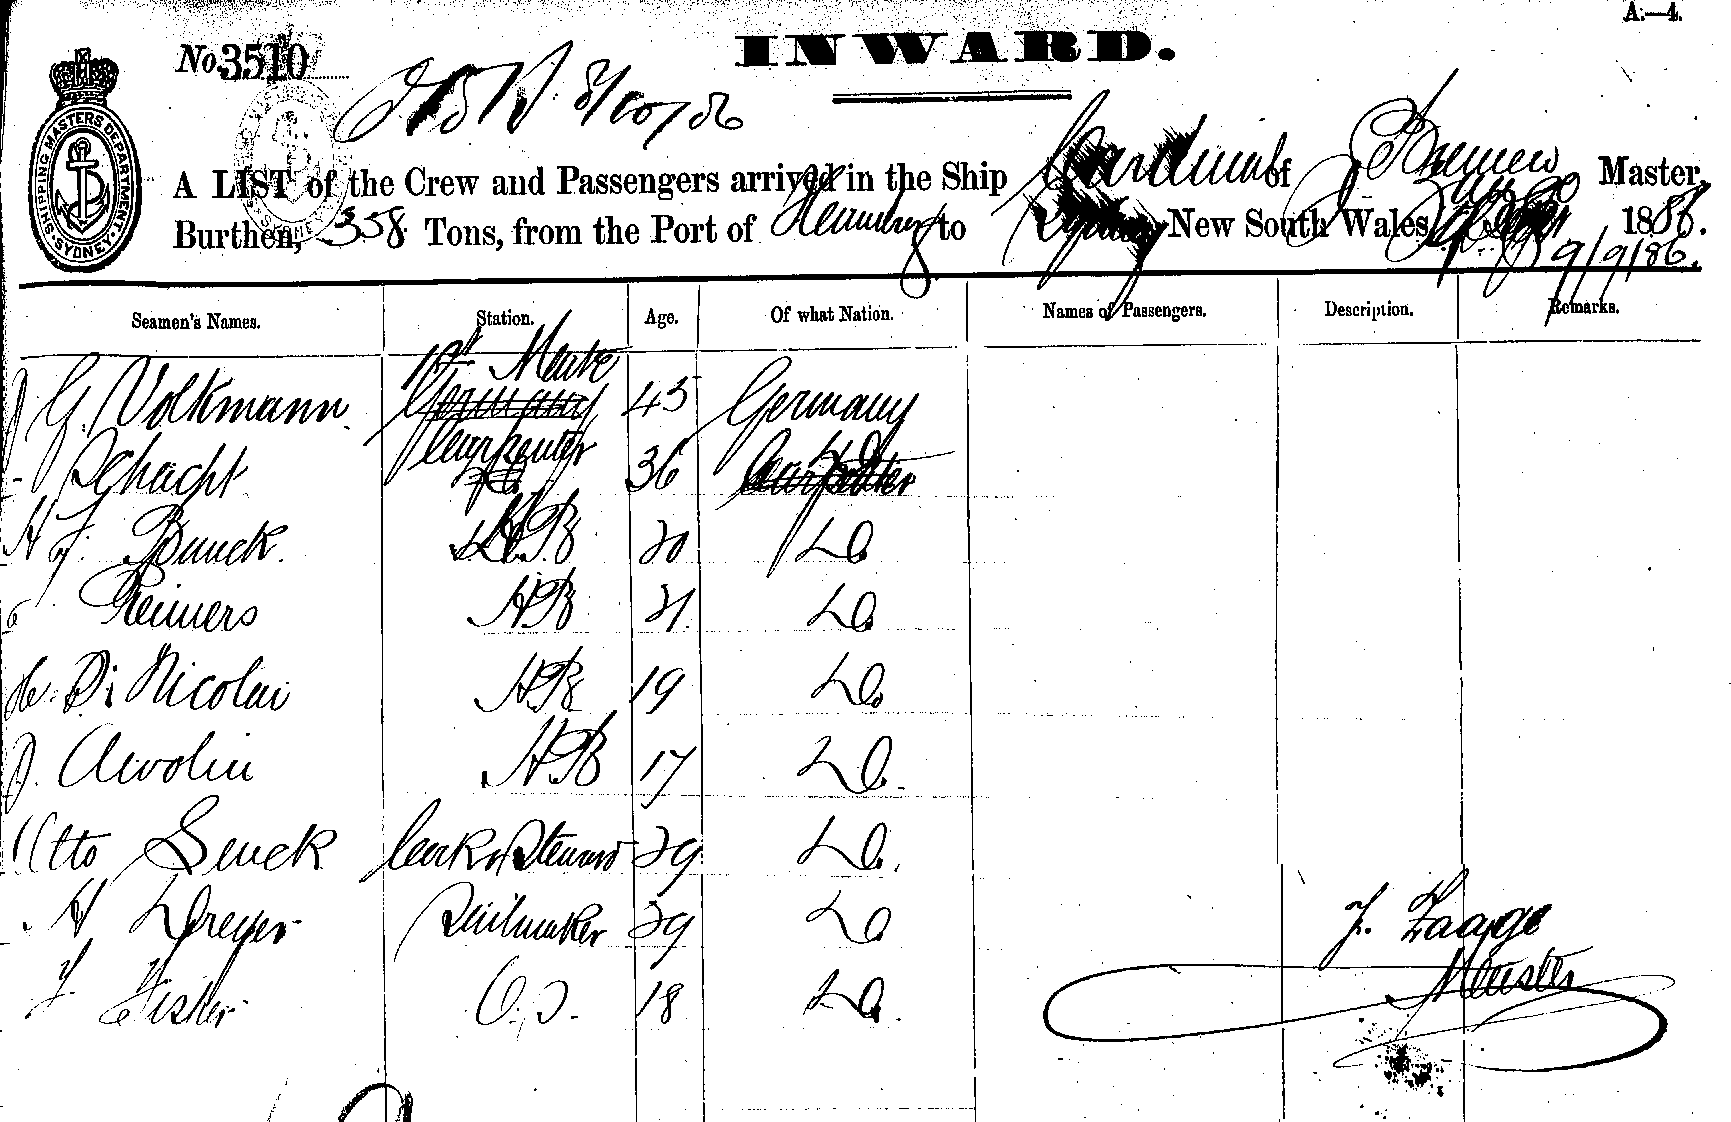 A.—4.
No. 3510
INWARD.
SHIPPING MASTERS DEPARTMENT SYDNEY
A LIST of the Crew and Passengers arrived in the Ship of Bremen Master,
Burthen, 358 Tons, from the Port of to Sydney New South Wales 1886.
9/9/86.
Seamen's Names. Station. Age. Of what Nation. Names of Passengers. Description. Remarks.
G. Volkmann 1st Mate Germany 45 Germany
Schacht Carpenter 36 Carpenter Do
H F. Bunck. AB 20 Do
Reimers AB 21 Do
Di Nicolai AB 19 Do
J. AB 17 Do.
Otto Cook & Steward 29 Do.
H Dreyer Sailmaker 29 Do
F O.S. 18 Do.
J. Zaage
Master